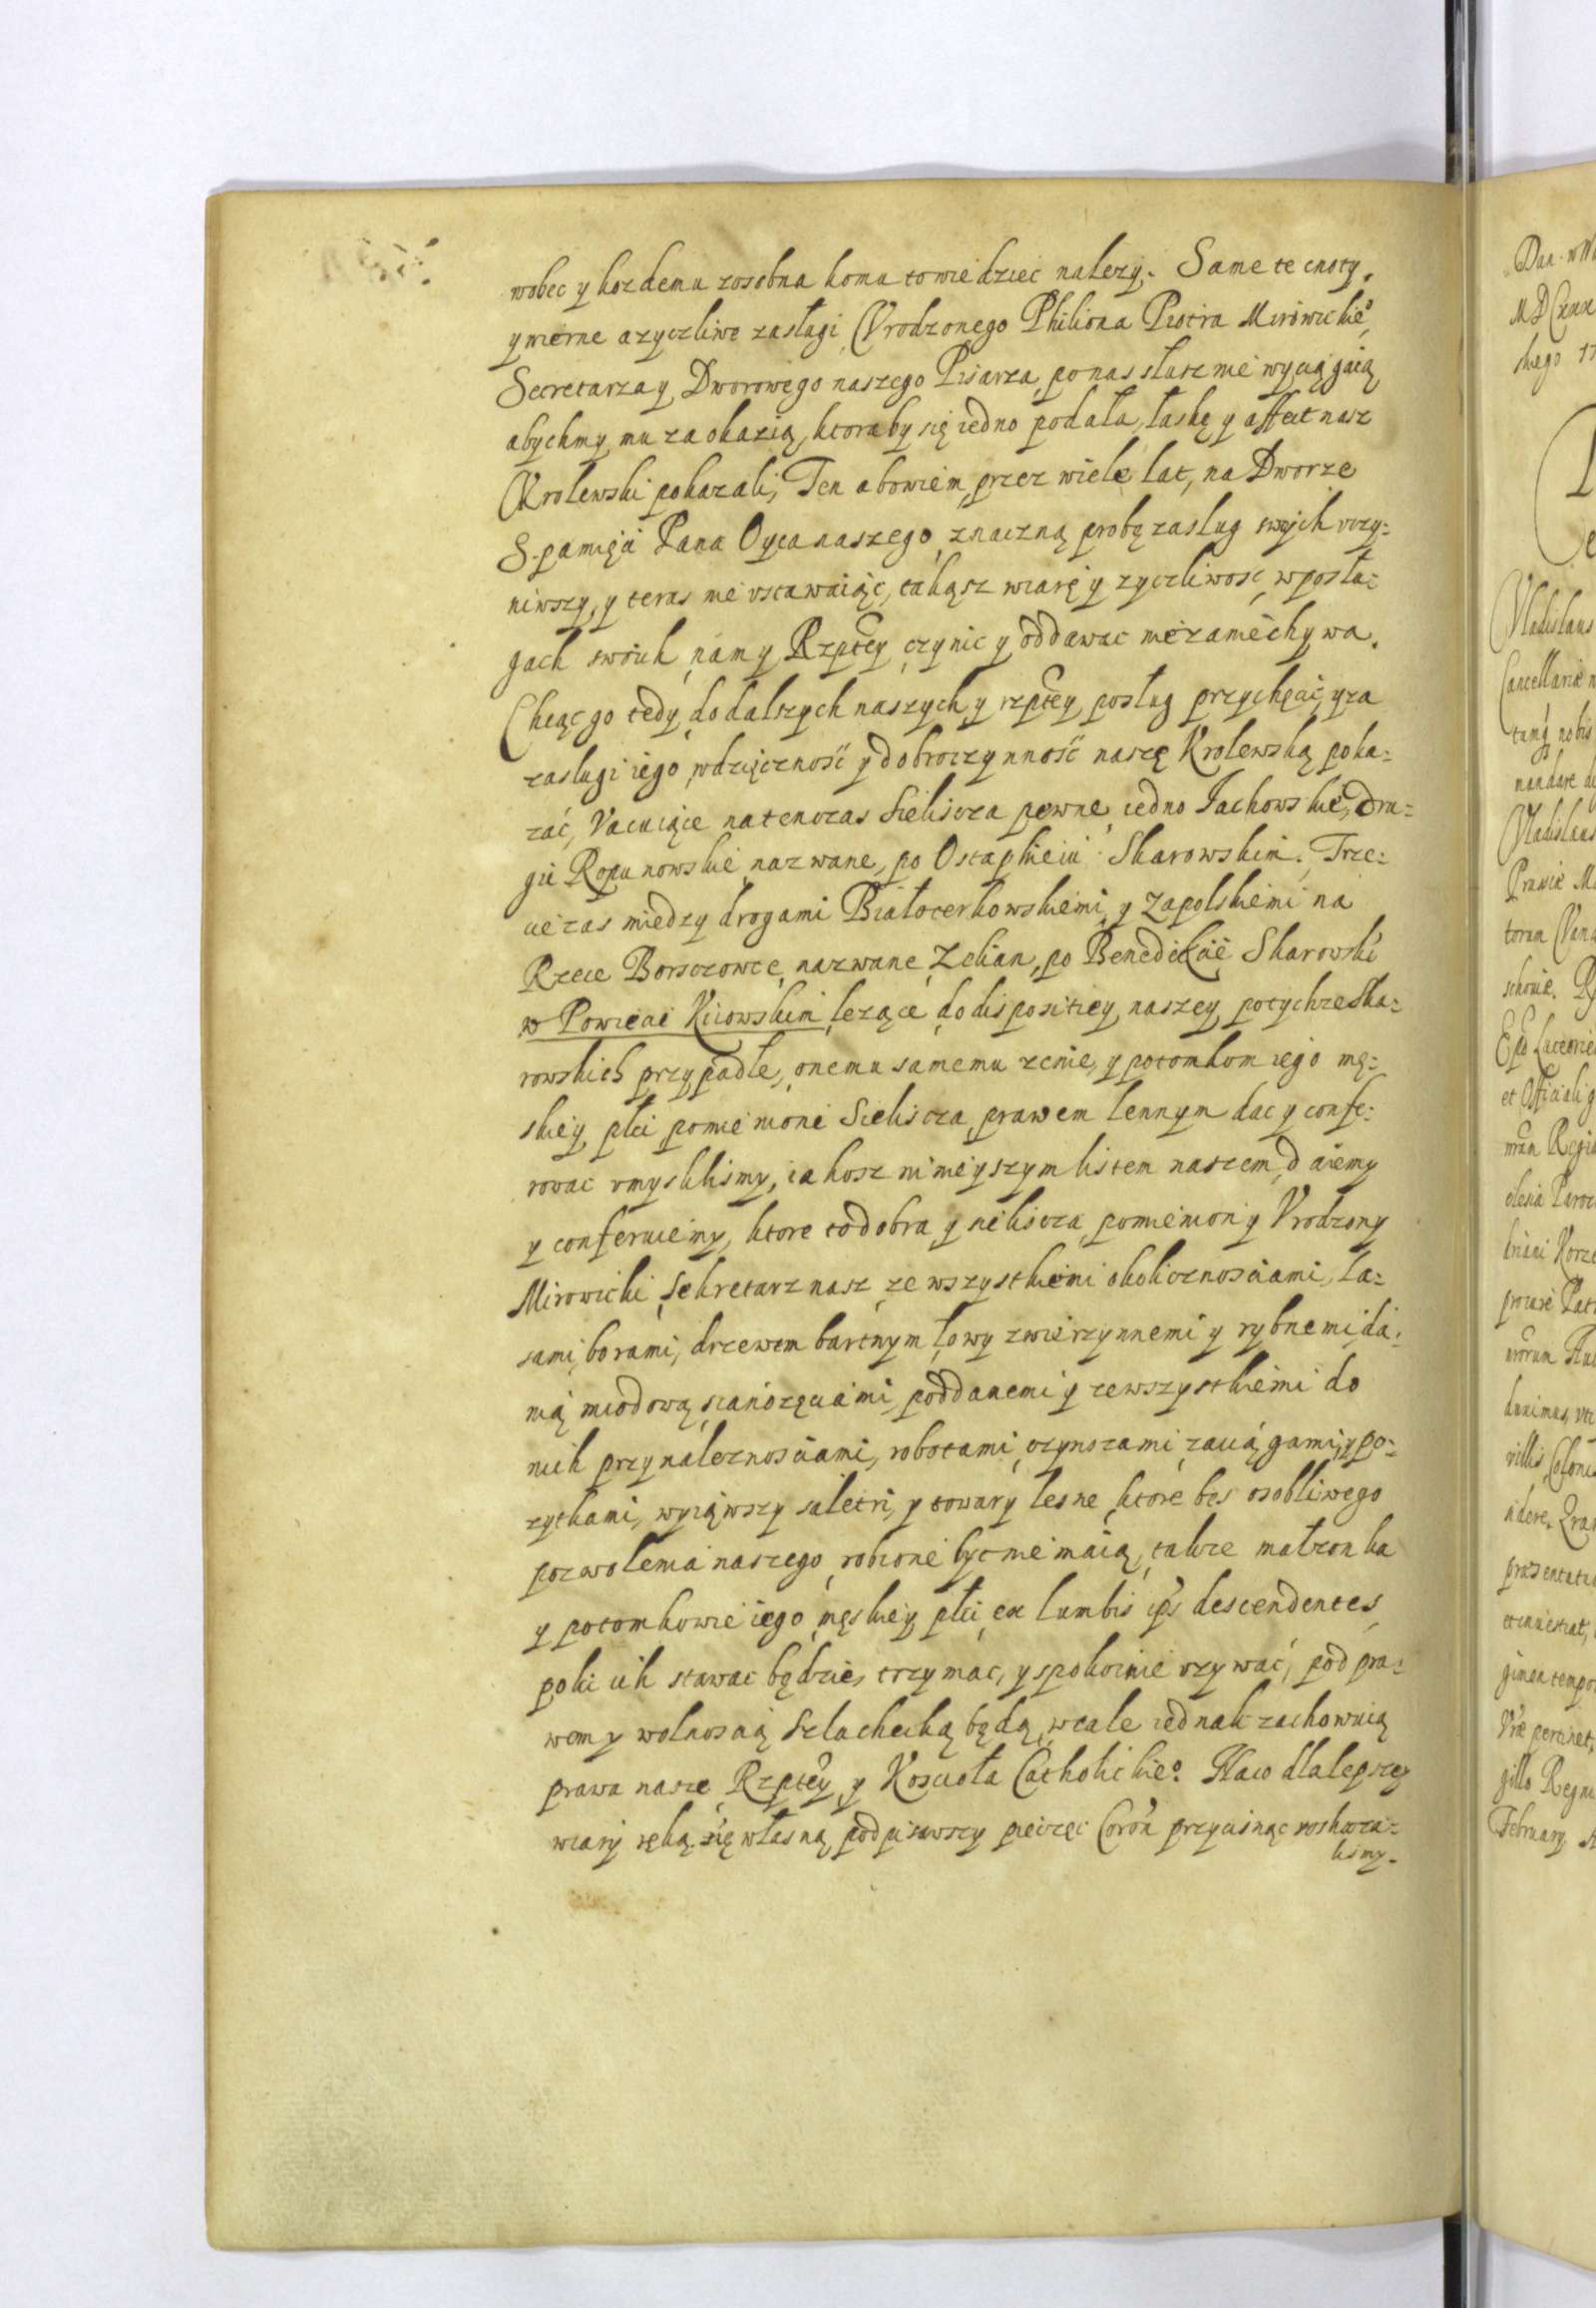 wobec y kozdemu zosobna komu to wiedziec nalezy. Same te cnoty,
y wierne a zyczliwe zasługi Vrodzonego Philiona Piotra Mirowickie°
Secretarza y Dworowego naszego Pisarza, po nas słusznie wyciągaią
abychmy mu za okazią, ktoraby się iedno podała, łaskę y affect nasz
Krolewski pokazali, Ten abowiem przez wiele lat, na Dworze
S. pamięci Pana Oyca naszego znaczną probę zasług swych vczy-
niwszy, y teras nie vstawaiąc, takąsz wiarę y zyczliwosc w posłu-
gach swoich nam y Rzptey czynic y oddawac nie zaniechywa.
Chcąc go tedy do dalszych naszych y rzptey posług przychęcic y za
zasługi iego wdzięcznosć y dobroczynność naszę Krolewską poka-
zać, Vacuiące natenczas Sieliscza pewne iedno Jachowskie, dru-
gie Ropunowskie nazwane, po Ostaphieiu Skarowskim. Trze-
cie zas miedzy drogami Białocerkowskiemi y Zapolskiemi na
Rzece Borsczowce nazwane Zelian, po Benedikcie Skarowski
w Powieciei Kiiowskim lezące do dispositiey naszey po tychze Ska-
rowskich przypadłe, onemu samemu zenie, y potomkom iego mę-
skiey płci pomienione Sieliscza prawem lennym dac y confe-
rowac vmyslilismy, iakosz ninieyszym listem naszem daiemy
y conferuiemy, ktore to dobra y sieliscza pomieniony Vrodzony
Mirowicki Sekretarz nasz ze wszystkiemi okolicznosciami, la-
sami, borami, drzewem bartnym łowy zwierzynnemi y rybnemi, da-
nią miodową, poddanemi y zewszystkiemi do
nich przynaleznosciami, robotami, czynszami, zaciągami, y po-
zytkami, wyiąwszy saletri, y towary lesne, ktore bes osobliwego
pozwolenia naszego robione byc nie maią, takze małzonka
y potomkowie iego męskiey płci ex lumbis ips descendentes
poki ich stawac będzie, trzymac, y spokoinie vzywać, pod pra-
wem y wolnoscią Szlachecką będą, wcale iednak zachowuią
prawa nasze, Rzptey, y Koscioła Catholickie°. Na co dla lepszey
wiary ręką się własną podpisawszy pieczęc Coron przycisnąc roskaza-
lismy.